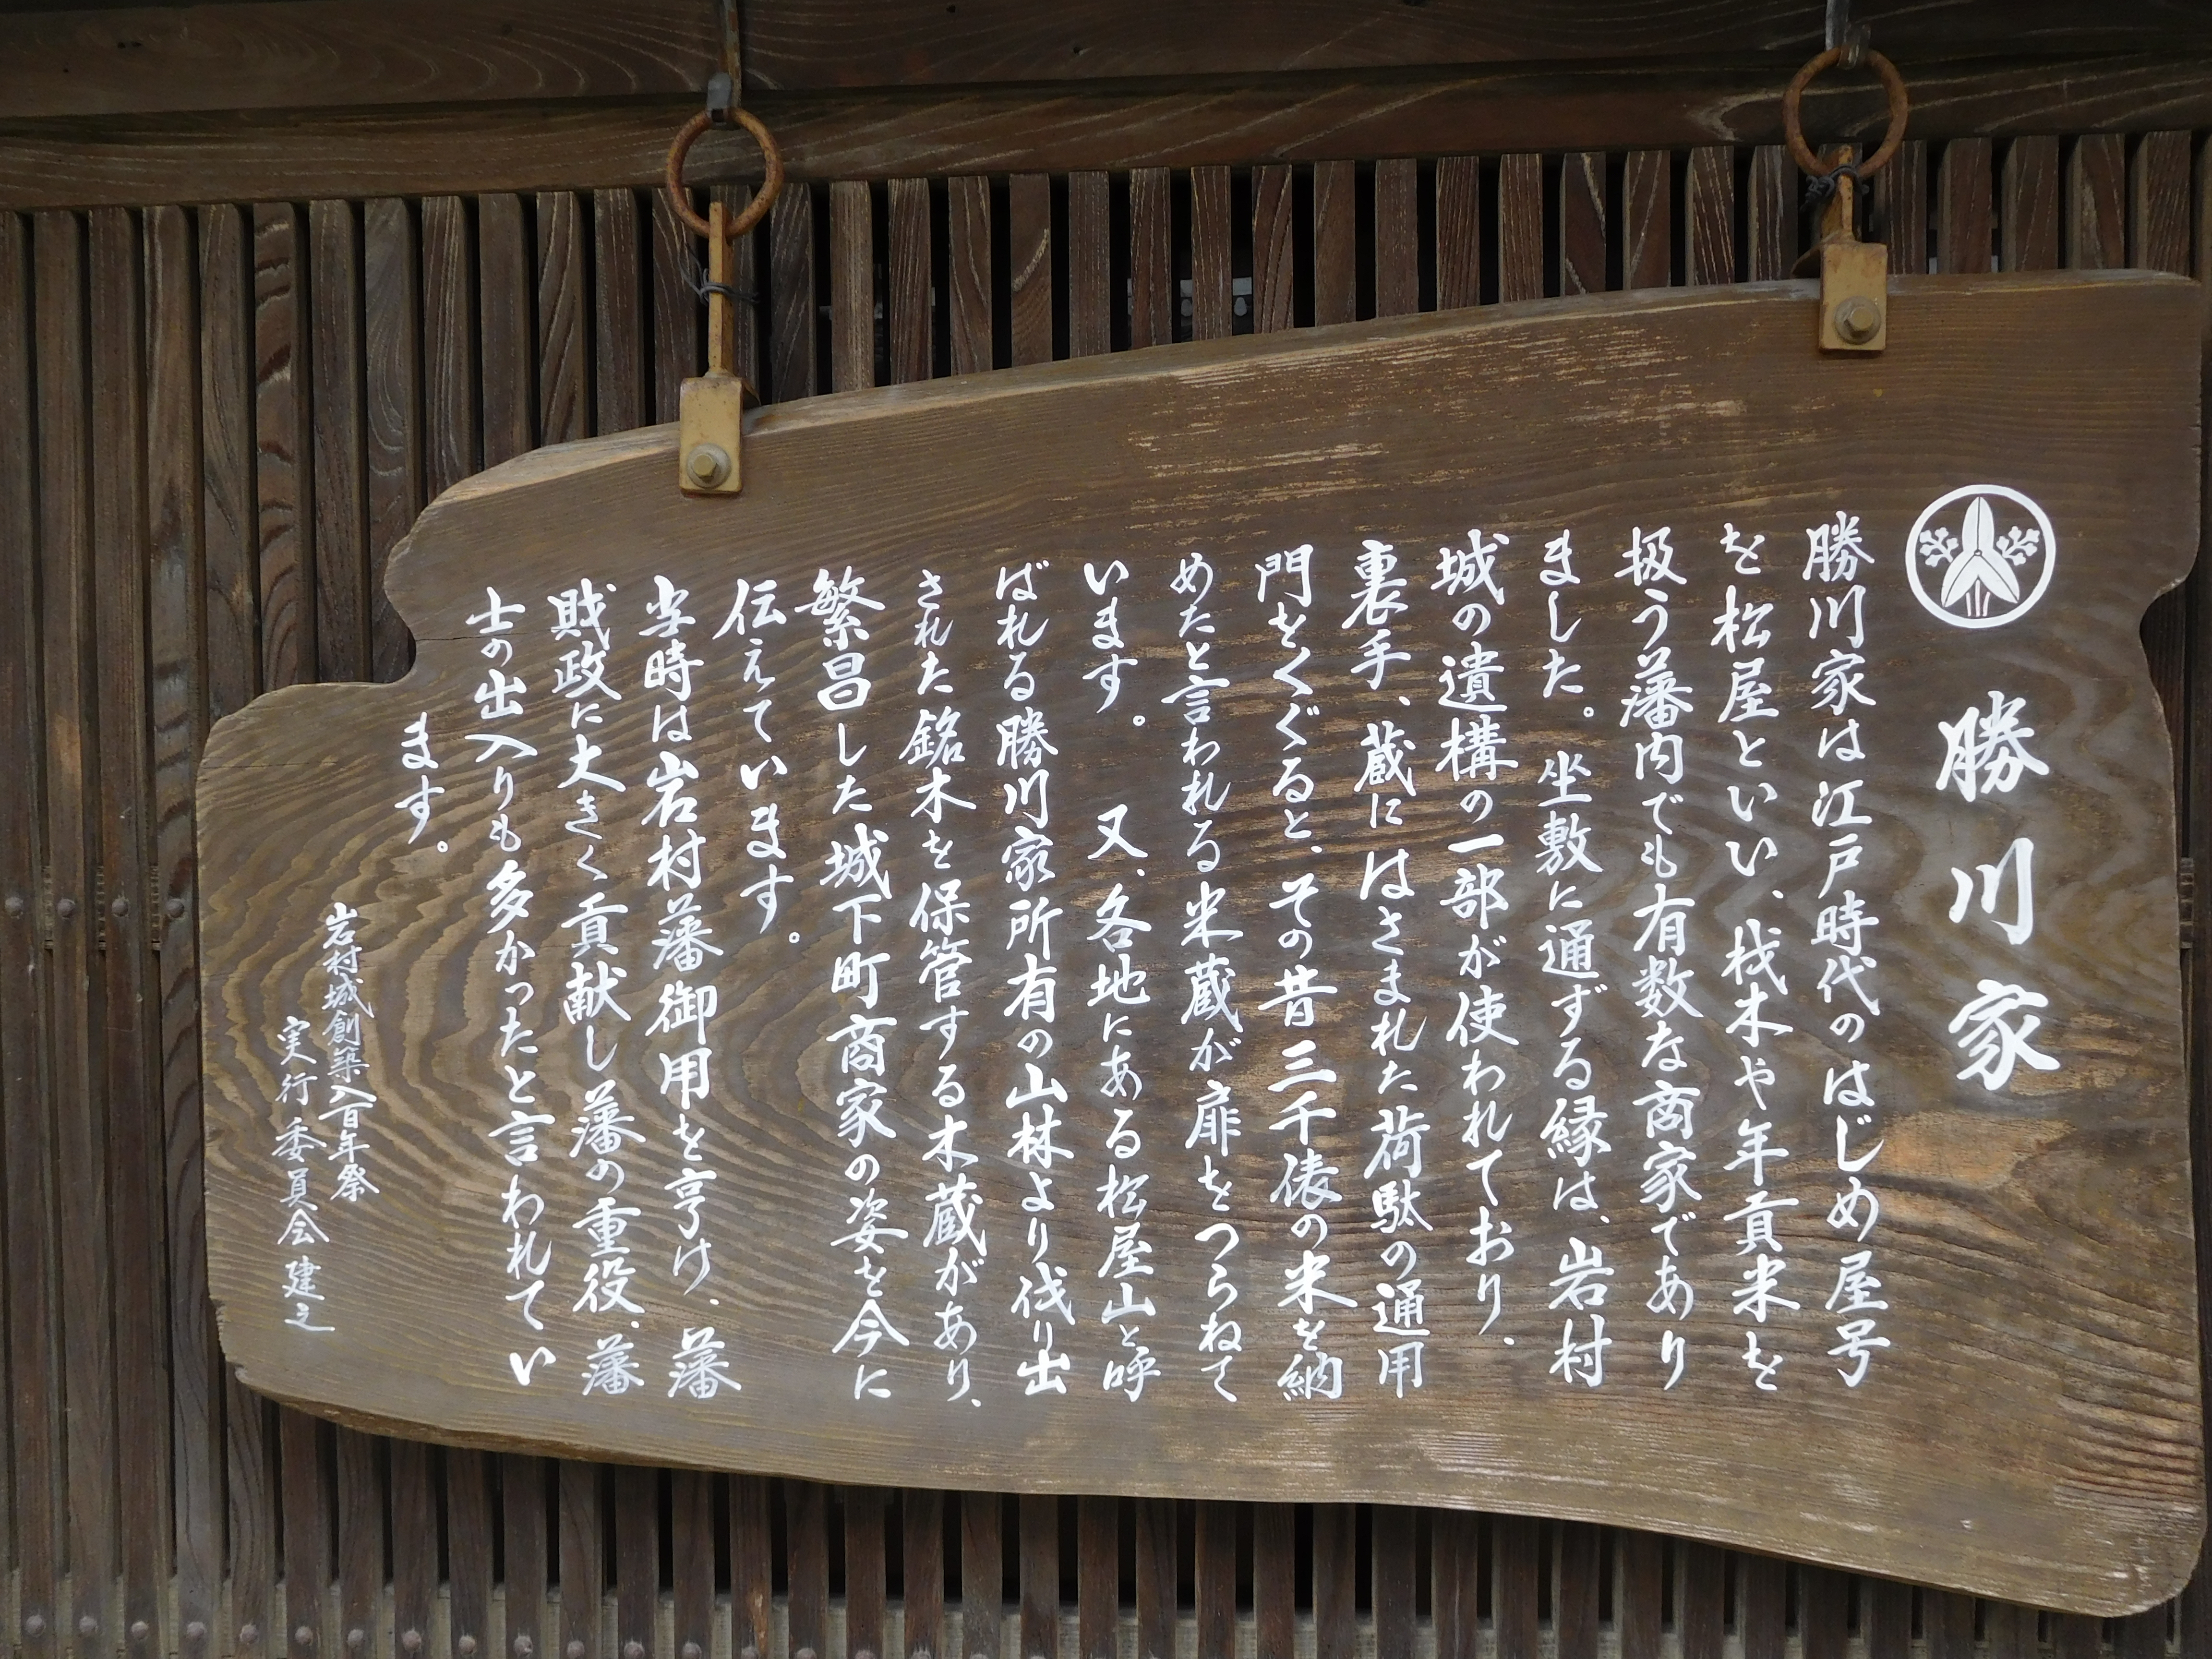 勝川家
勝川家は江戸時代のはじめ屋号
を松屋といい、材木や年貢米を
扱う藩内でも有数な商家であり
ました。坐敷に通ずる縁は、岩村
城の遺構の一部が使われており、
裏手、蔵にはさまれた荷駄の通用
門をくぐると、その昔三千俵の米を納
めたと言われる米蔵が扉をつらねて
います。 又、各地にある松屋山と呼
ばれる勝川家所有の山林より伐り出
された銘木を保管する木蔵があり、
繁昌した城下町商家の姿を今に
伝えています。
当時は岩村藩御用を亨け、藩
財政に大きく貢献し藩の重役、藩
士の出入りも多かったと言われてい
ます。
岩村城創築八百年祭
実行委員会 建之